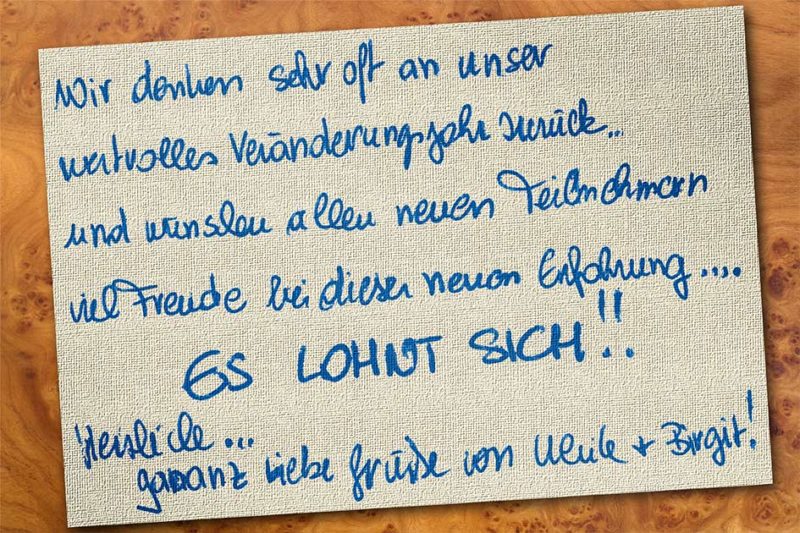 Wir denken sehr oft an unser
wertvolles Veränderungsjahr zurück...
und wünschen allen neuen Teilnehmern
viel Freude bei dieser neuen Erfahrung....
ES LOHNT SICH!!..
Herzliche...
gaaanz liebe Grüße von Ulrike + Birgit!